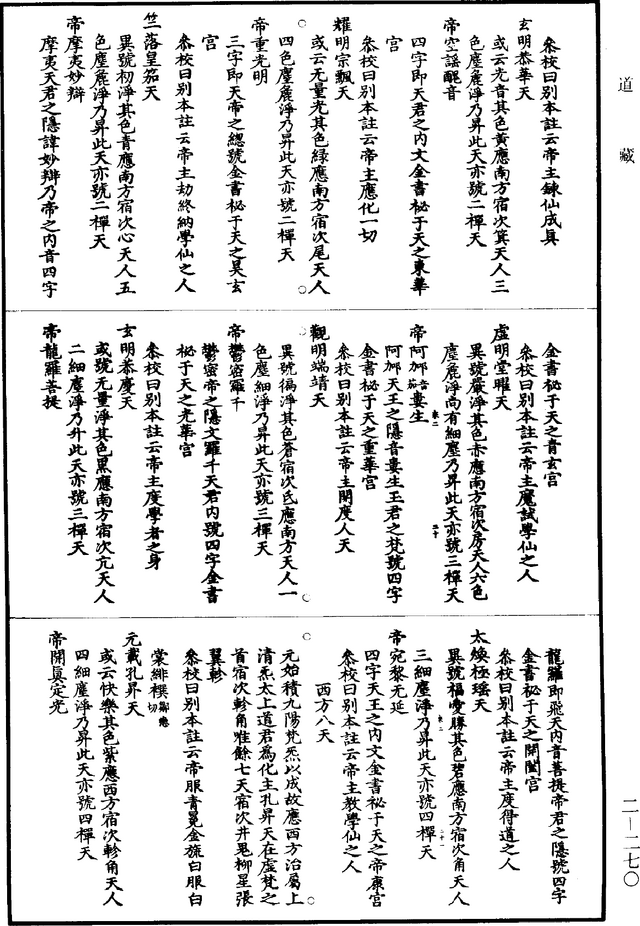 道藏
叅校曰别本註云帝主鍊仙成真
玄明恭華天
或云光音其色黃應南方宿次箕天人三
色塵麁淨乃昇此天亦號二禪天
帝空謡醜音
四字即天君之内文金書祕于天之東華
宮
叅校曰别本註云帝主應化一切
耀明宗飄天
或云无量光其色綠應南方宿次尾天人
四色塵麁淨乃昇此天亦號二禪天
帝重光明
三字即天帝之總號金書祕于天之昊玄
宮
叅校曰别本註云帝主劫終納學仙之人
竺落皇笳天
異號初淨其色青應南方宿次心天人五
色塵麁淨乃昇此天亦號二禪天
帝摩夷妙辯
摩夷天君之隱諱妙辯乃帝之内音四字
金書祕于天之青玄宮
叅校曰别本註云帝主魔試學仙之人
虛明堂曜天
異號嚴淨其色赤應南方宿次房天人六色
塵麁淨尚有細塵乃昇此天亦號三禪天
帝阿那婁生
阿那天王之隱音婁生王君之梵號四字
金書祕于天之重華宮
叅校曰别本註云帝主開度人天
觀明端靖天
異號徧淨其色蒼宿次氐應南方天人一
色塵細淨乃昇此天亦號三禪天
帝鬱密羅千
鬱密帝之隱文羅千天君内號四字金書
祕于天之光華宮
叅校曰别本註云帝主度學者之身
玄明恭慶天
或號无量淨其色黑應南方宿次亢天人
二細塵淨乃升此天亦號三禪天
帝龍羅菩提
龍羅即飛天内音菩提帝君之隱號四字
金書祕于天之開闔宮
叅校曰别本註云帝主度得道之人
太煥極瑶天
異號福愛勝其色碧應南方宿次角天人
三細塵淨乃昇此天亦號四禪天
帝宛黎无延
四字天王之内文金書祕于天之帝康宮
叅校曰别本註云帝主教學仙之人
西方八天
元始積九陽梵炁以成故應西方治屬上
清炁太上道君為化主孔昇天在虛梵之
首宿次軫角唯餘七天宿次井鬼柳星張
翼軫
叅校曰别本註云帝服青冕金旒白服白
裳緋襈
元載孔昇天
或云快樂其色紫應西方宿次軫角天人
四細塵淨乃昇此天亦號四禪天
帝開真定光
二—二七〇